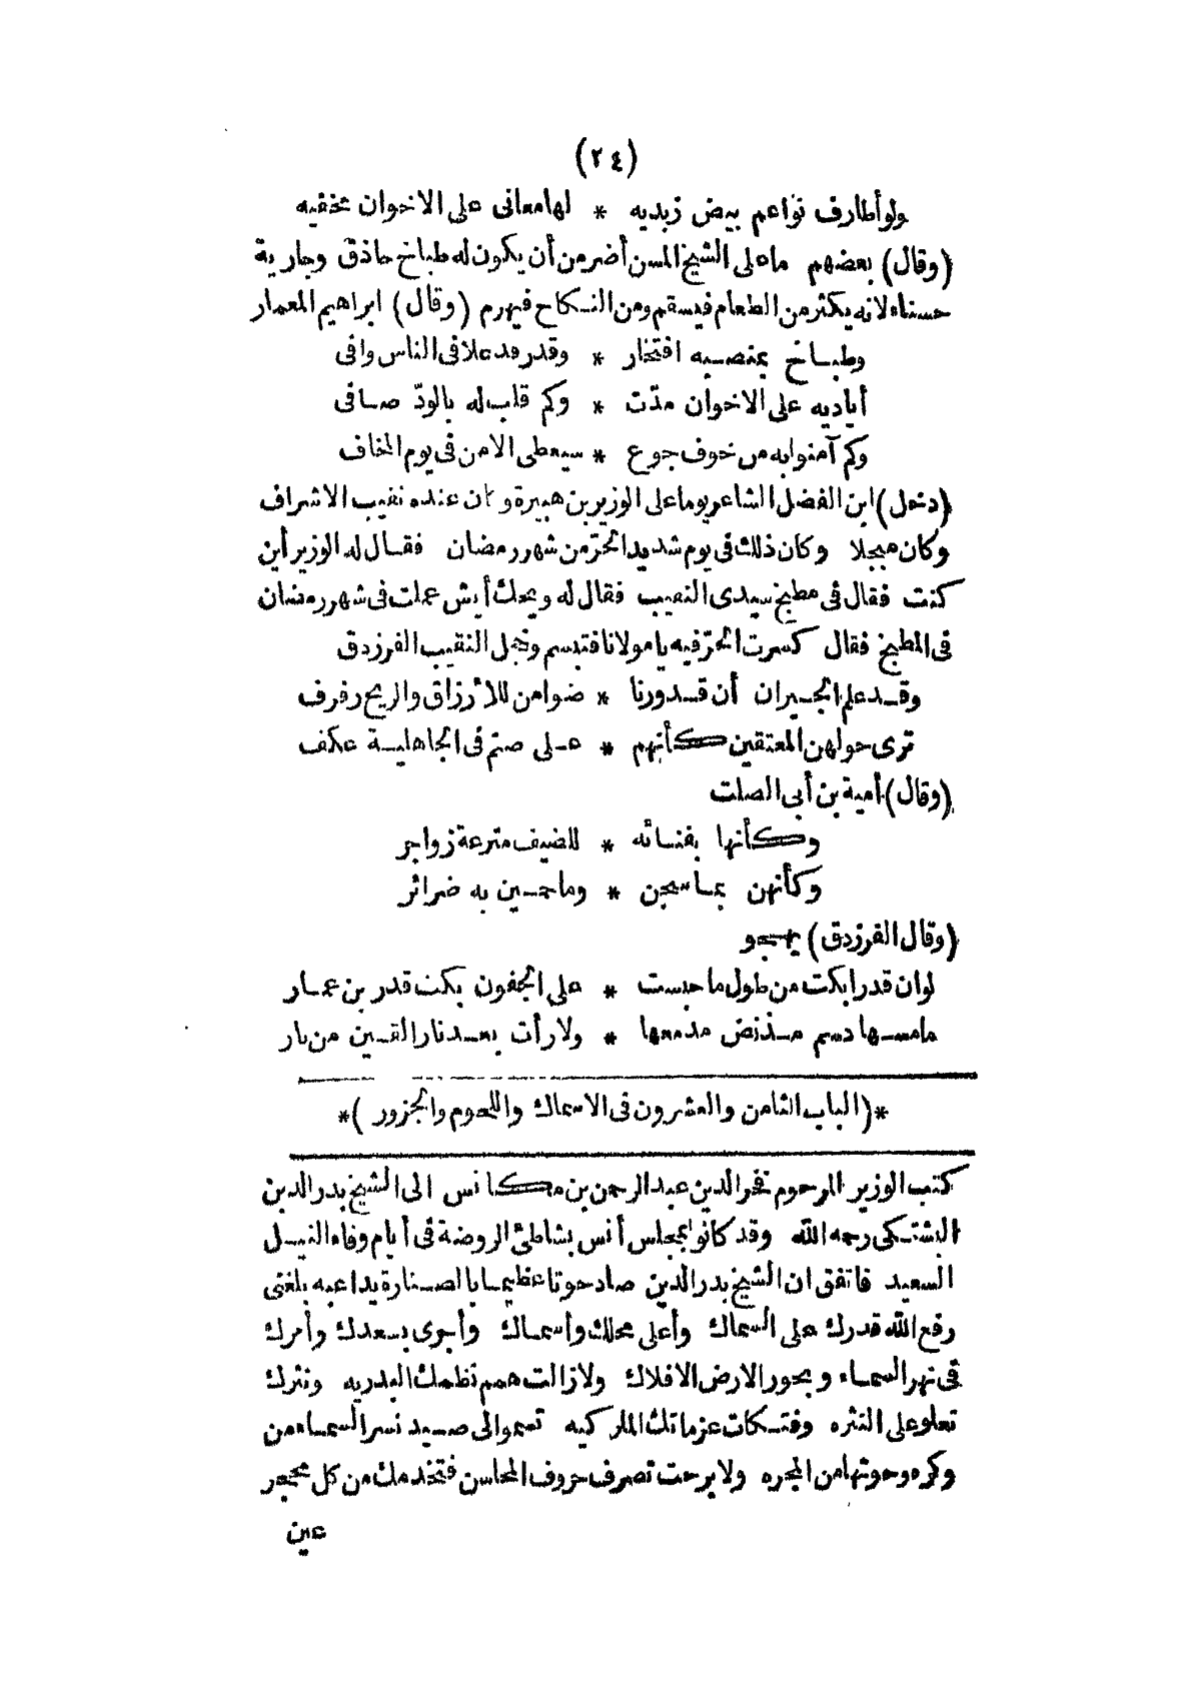 (٢٤)
ولو أطارف نواعم بيض زبديه * لها معانى على الاخوان مخفيه
(وقال) بعضهم ما على الشيخ المسن أضر من أن يكون له طباخ حاذق وجارية
حسناء لانه يكثر من الطعام فيسقم ومن النكاح فيهرم (وقال) ابراهيم المعمار
وطباخ بمنصبه افتخار * وقدر قد علا فى الناس وافى
أياديه على الاخوان مدّت * وكم قلب له بالودّ صافى
وكم آمنوا به من خوف جوع * سيعطى الامن فى يوم المخاف
(دخل) ابن الفضل الشاعر يوما على الوزير بن هبيرة وكان عنده نقيب الاشراف
وكان مبجلا وكان ذلك فى يوم شديد الحرّ من شهر رمضان فقال له الوزير أين
كنت فقال فى مطبخ سيدى النقيب فقال له ويحك أيش عملت فى شهر رمضان
فى المطبخ فقال كسرت الحرّ فيه يا مولانا فتبسم وخجل النقيب الفرزدق
وقد علم الجيران أن قدورنا * ضوامن للأرزاق والريح رفرف
ترى حولهن المعتقين كأنهم * على صنم فى الجاهلية عكف
(وقال) أمية بن أبى الصلت
وكأنها بفنائه * للضيف مترعة زواجر
وكأنهن بما سجن * وما حمين به ضرائر
(وقال الفرزدق) يهجو
لو ان قدرا بكت من طول ما حبست * على الجفون بكت قدر بن عمار
ما مسها دسم مذ نض مدمعها * ولا رأت بعد نار القين من نار
*(الباب الثامن والعشرون فى الاسماك واللحوم والجزور)*
كتب الوزير المرحوم فخر الدين عبد الرحمن بن مكانس الى الشيخ بدر الدين
البشتكى رحمه الله وقد كانوا بمجلس أنس بشاطئ الروضة فى أيام وفاء النيل
السعيد فاتفق ان الشيخ بدر الدين صاد حوتا عظيما بالصنارة يداعبه بلغنى
رفع الله قدرك على السماك وأعلى محلك وأسماك وأجرى بسعدك وأمرك
فى نهر السماء وبحور الارض الافلاك ولا زالت همم نظمك البدريه ونثرك
تعلو على النثره وفتكات عزماتك الملوكيه تسمو الى صيد نسر السماء من
وكره وحوتها من المجره ولا برحت تصرف حروف المحاسن فتخدمك من كل محجر
عين